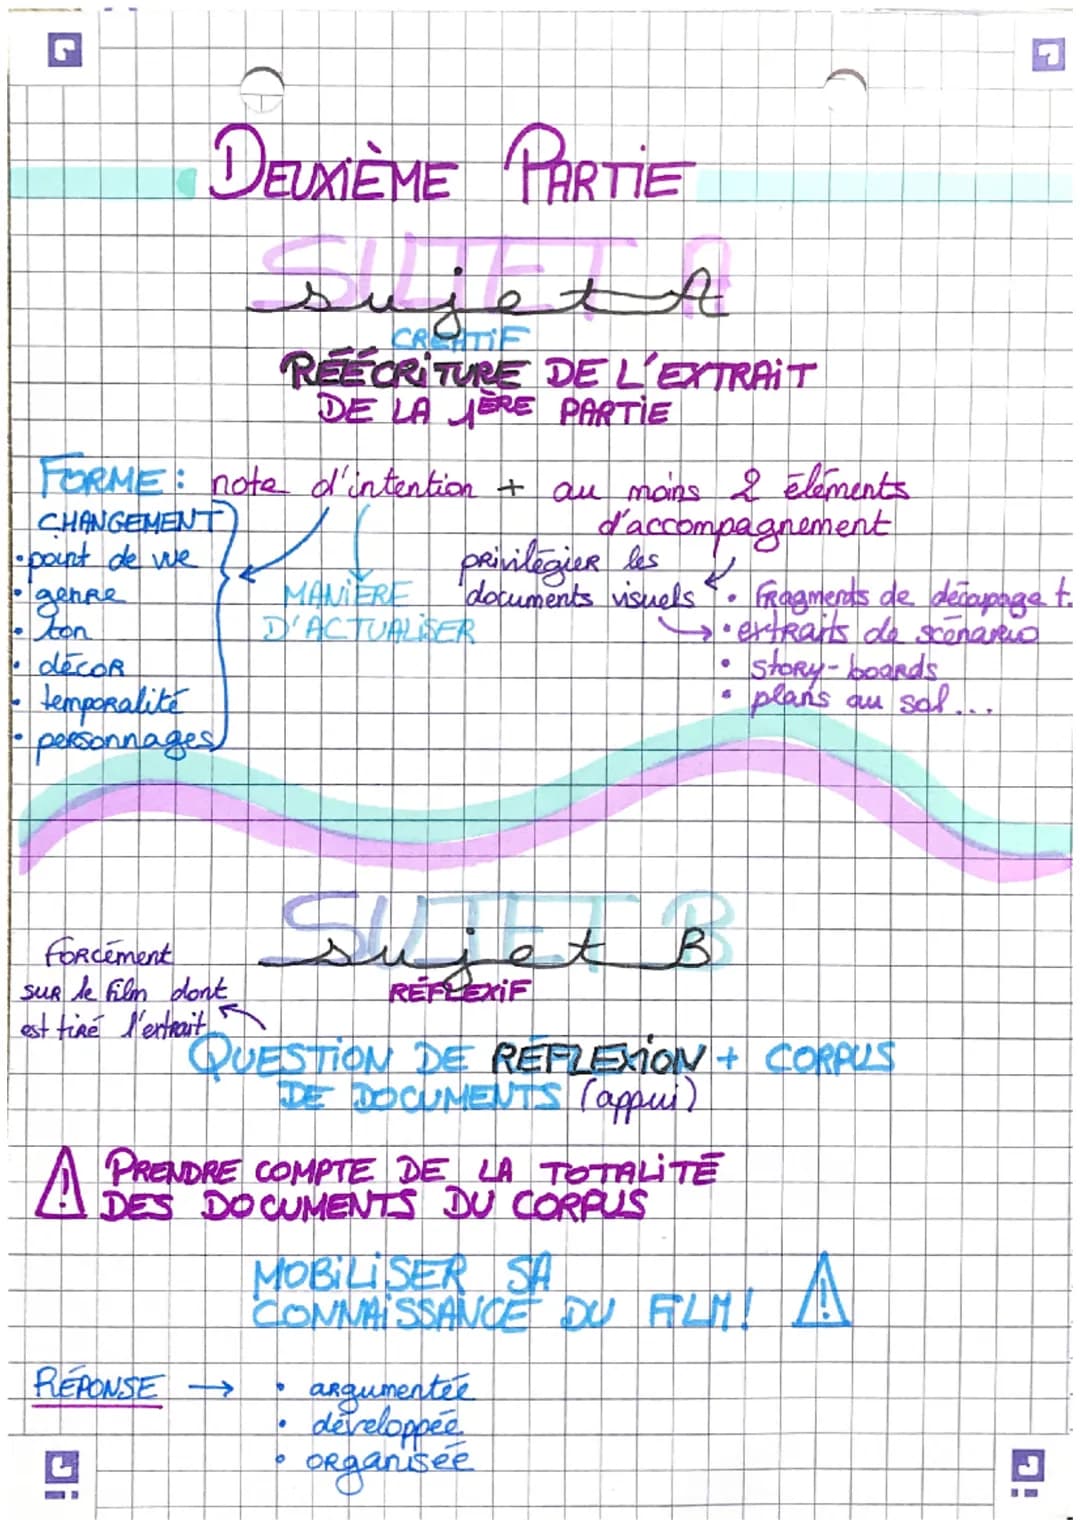 DEUXIÈME PARTIE
SUJET A
sujet A
CRÉATIF
RÉÉCRITURE DE L'EXTRAIT
DE LA 1ÈRE PARTIE
FORME : note d'intention + au moins 2 éléments
d'accompagnement
CHANGEMENT
• point de vue
• genre
• ton
• décor
• temporalité
• personnages
MANIÈRE
D'ACTUALISER
privilégier les
documents visuels
• fragments de découpage t.
• extraits de scénario
• story-boards
• plans au sol...
SUJET B
sujet B
RÉFLEXIF
Forcément
sur le film dont
est tiré l'extrait
QUESTION DE RÉFLEXION + CORPUS
DE DOCUMENTS (appui)
! PRENDRE COMPTE DE LA TOTALITÉ
DES DOCUMENTS DU CORPUS
MOBILISER SA
CONNAISSANCE DU FILM ! !
RÉPONSE → • argumentée
• développée
• organisée